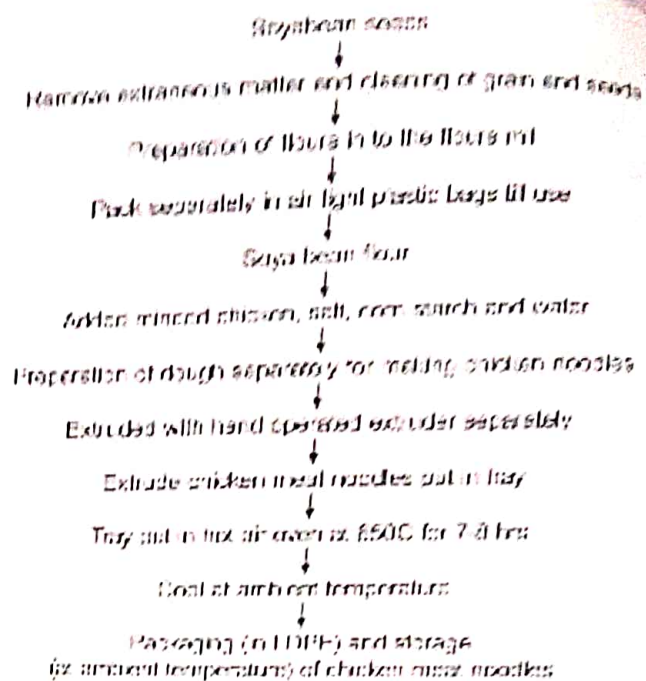 Soyabean seeds
Remove extraneous matter and cleaning of grain and seeds
Preparation of flours in to the flours mill
Pack separately in air tight plastic bags till use
Soya bean flour
Added minced chicken, salt, corn starch and water
Preparation of dough separately for making chicken noodles
Extruded with hand operated extruder separately
Extrude chicken meat noodles put in tray
Tray put in hot air oven at 650C for 7-8 hrs
Cool at ambient temperature
Packaging (in LDPE) and storage
(at ambient temperature) of chicken meat noodles